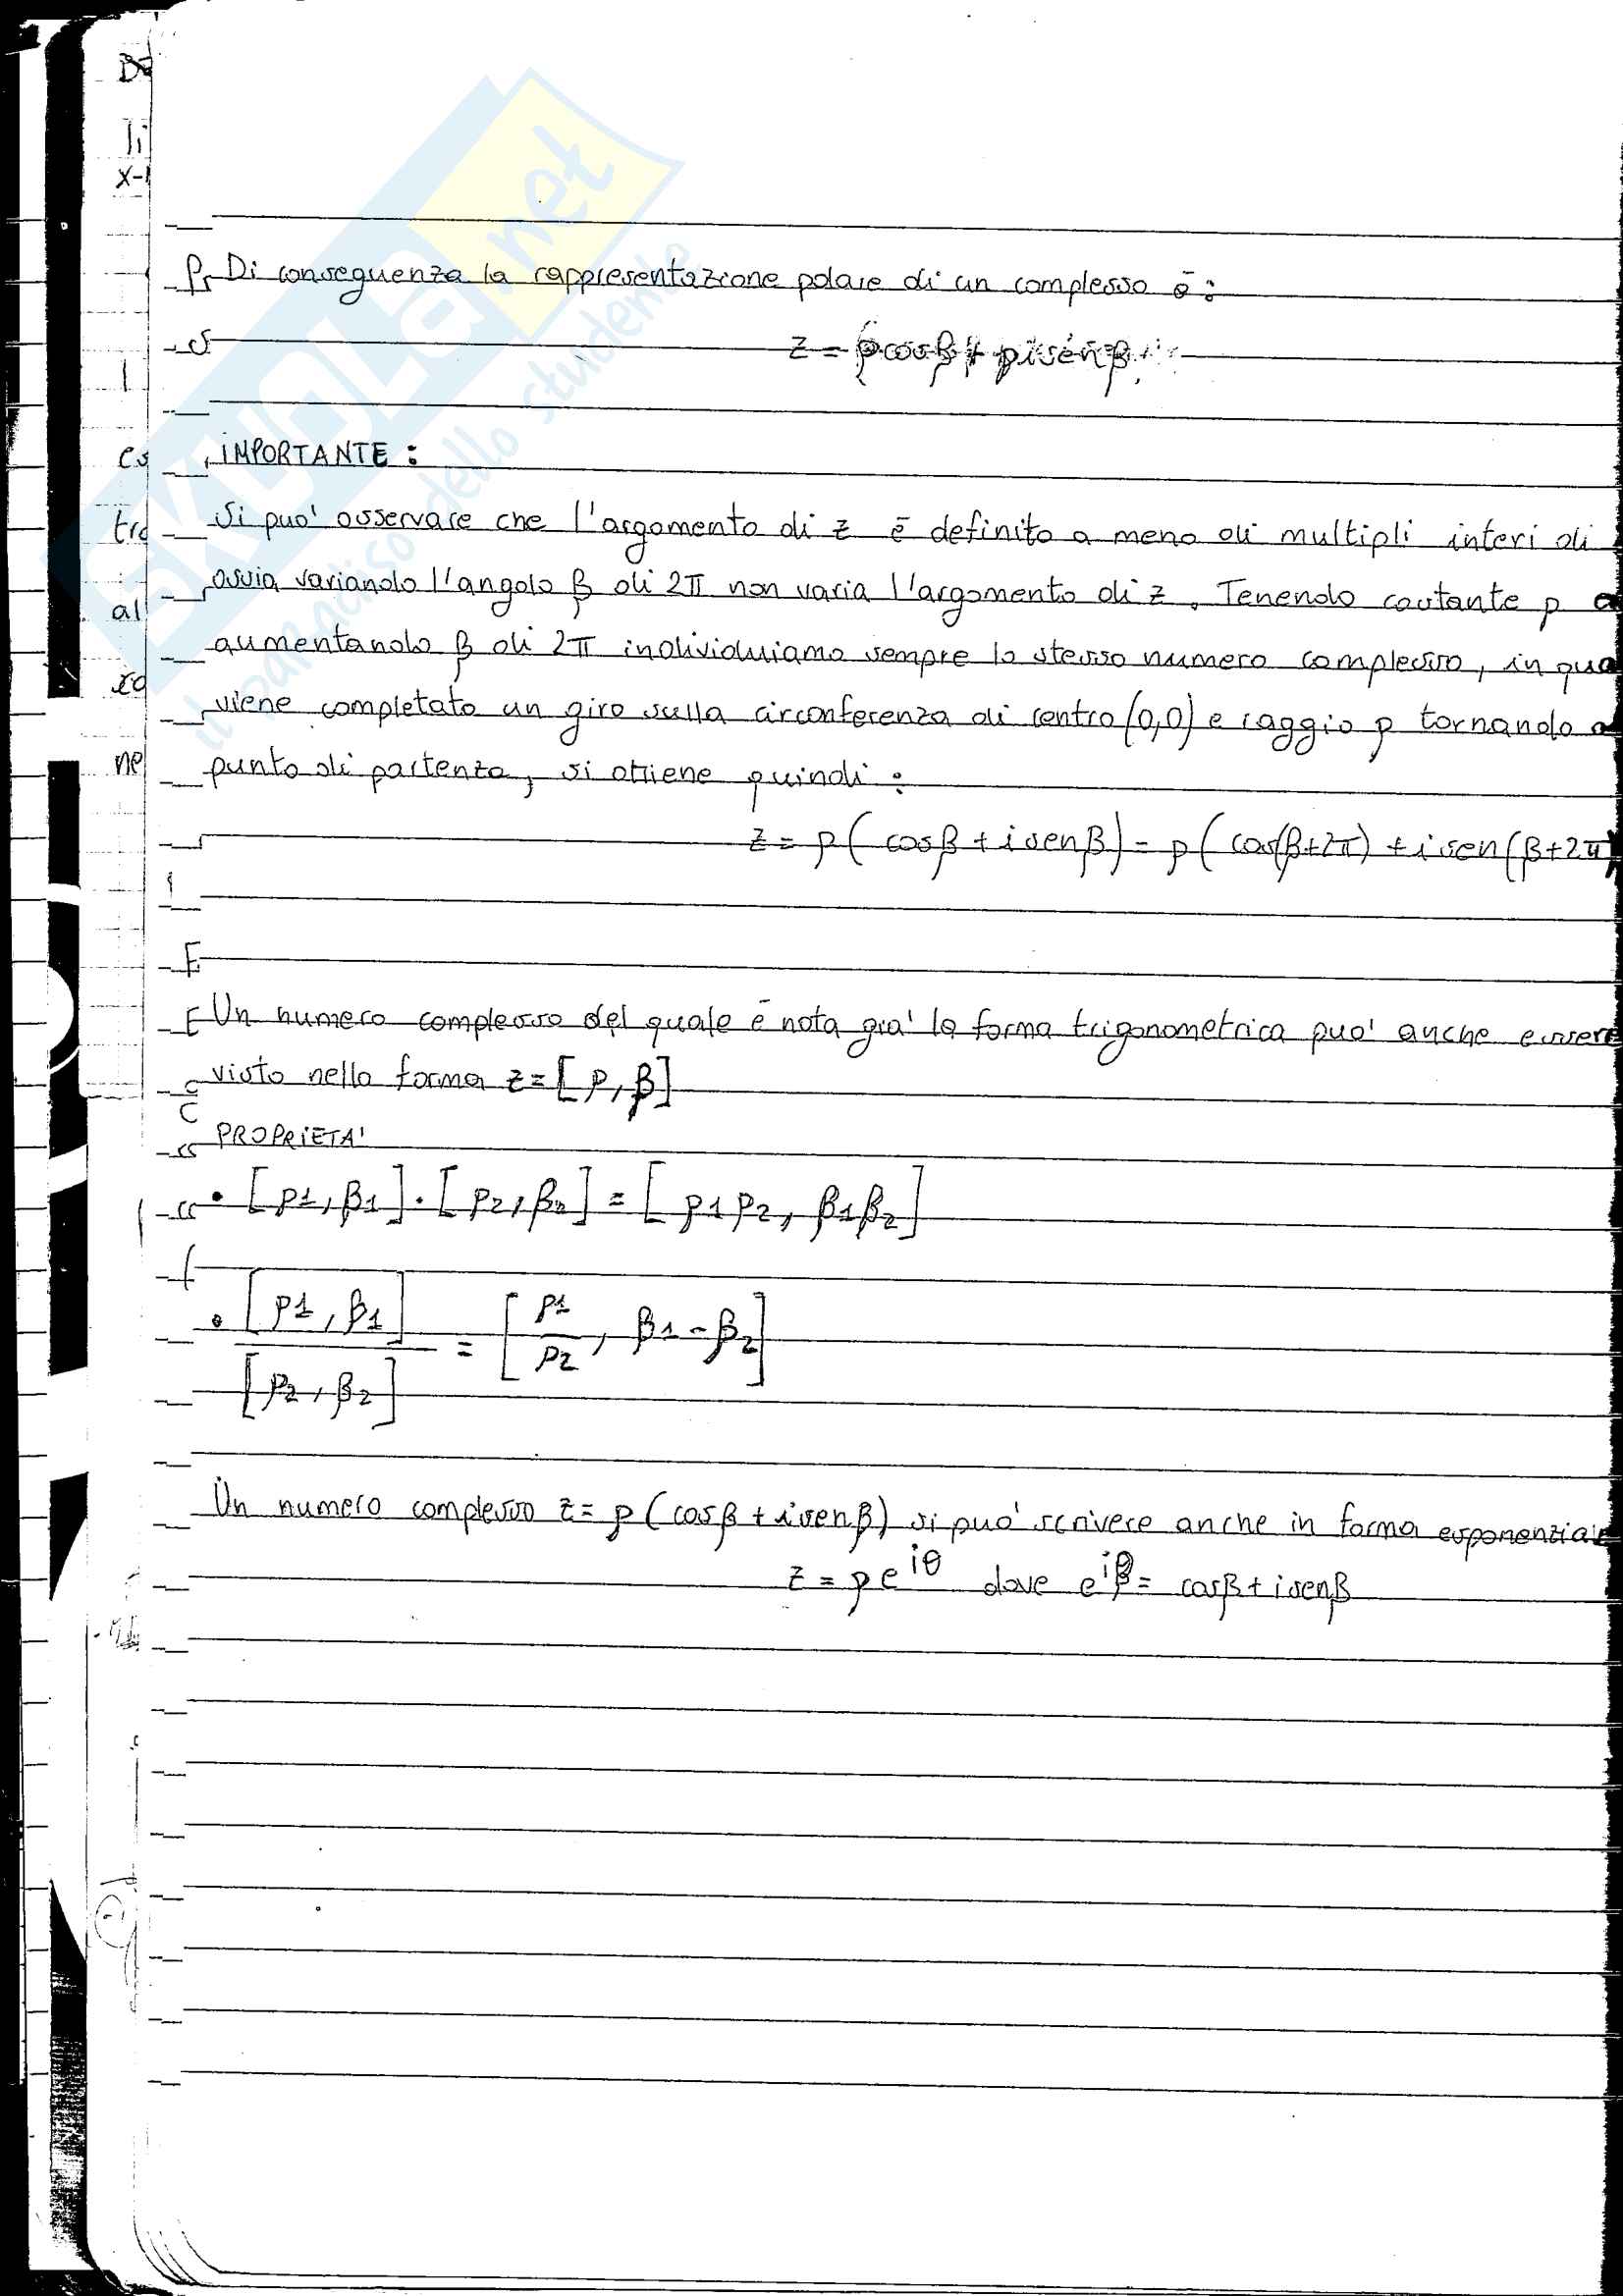 Di conseguenza la rappresentazione polare di un complesso è:
z = ρcosβ + ρisenβ
IMPORTANTE:
Si puo' osservare che l'argomento di z è definito a meno di multipli interi di
ovvia variando l'angolo β di 2π non varia l'argomento di z. Tenendo costante ρ
aumentando β di 2π individuiamo sempre lo stesso numero complesso, in qua
viene completato un giro sulla circonferenza di centro (0,0) e raggio ρ tornando a
punto di partenza, si ottiene quindi:
z = ρ(cosβ + isenβ) = ρ(cos(β+2π) + isen(β+2π)
Un numero complesso del quale è nota gia' la forma trigonometrica puo' anche essere
visto nella forma z = [ρ, β]
PROPRIETA'
• [ρ1, β1] · [ρ2, β2] = [ρ1ρ2, β1β2]
• [ρ1, β1] / [ρ2, β2] = [ρ1/ρ2, β1-β2]
Un numero complesso z = ρ(cosβ + isenβ) si puo' scrivere anche in forma esponenzial
z = ρe^iθ dove e^iβ = cosβ + isenβ
SKUOLA.net
il paradiso dello studente